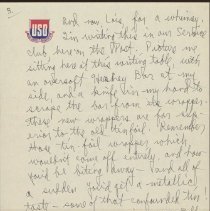 3.
USO
And now, Lois, for a whimsy.
I'm writing this in our Service
Club here on the Post. Picture me
sitting here at this writing table, with
an oversoft Hershey Bar at my
side, and a knife in my hand to
scrape the bar from its wrapper.
These new wrappers are far sup-
erior to the old tinfoil. Remember
those tin-foil wrappers which
wouldn't come off entirely, and how
you'd be biting away — and all of
a sudden you'd get a metallic
taste — some of that confounded tin!